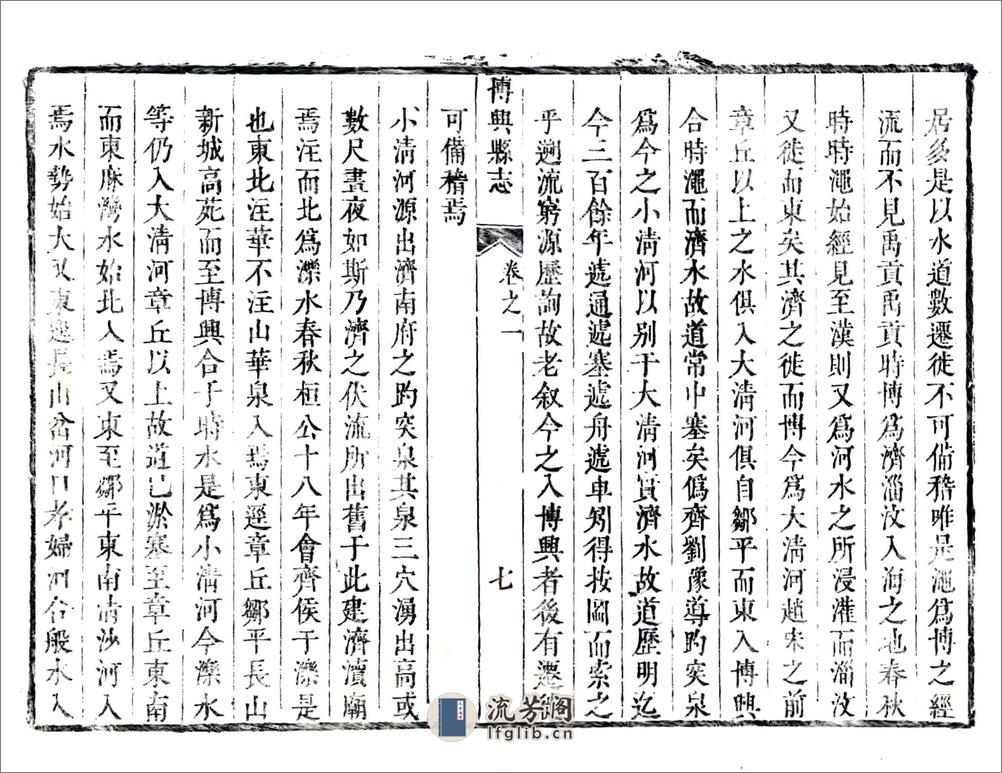 居多是以水道數遷徙不可備稽唯是澠爲博之經
流而不見禹貢禹貢時博爲濟淄汶入海之地春秋
時時澠始經見至漢則又爲河水之所浸灌而淄汶
又徙而東矣其濟之徙而博今爲大淸河趙宋之前
章丘以上之水俱入大淸河俱自鄒平而東入博興
合時澠而濟水故道常中塞矣僞齊劉豫導趵突泉
爲今之小淸河以别于大淸河實濟水故道歷明迄
今三百餘年遞通遞塞遞舟遞車矧得按圖而索之
乎遡流窮源歷詢故老叙今之入博興者後有遷
博興縣志
卷之一
七
可備稽焉
小淸河源出濟南府之趵突泉其泉三穴湧出高或
數尺晝夜如斯乃濟之伏流所出舊于此建濟瀆廟
焉注而北爲濼水春秋桓公十八年會齊侯于濼是
也東北注華不注山華泉入焉東逕章丘鄒平長山
新城高苑而至博興合于時水是爲小淸河今濼水
等仍入大淸河章丘以上故道已淤塞至章丘東南
而東麻灣水始北入焉又東至鄒平東南淸沙河入
焉水勢始大又東逕長山岔河口孝婦河合般水入
流芳閣
lfglib.cn